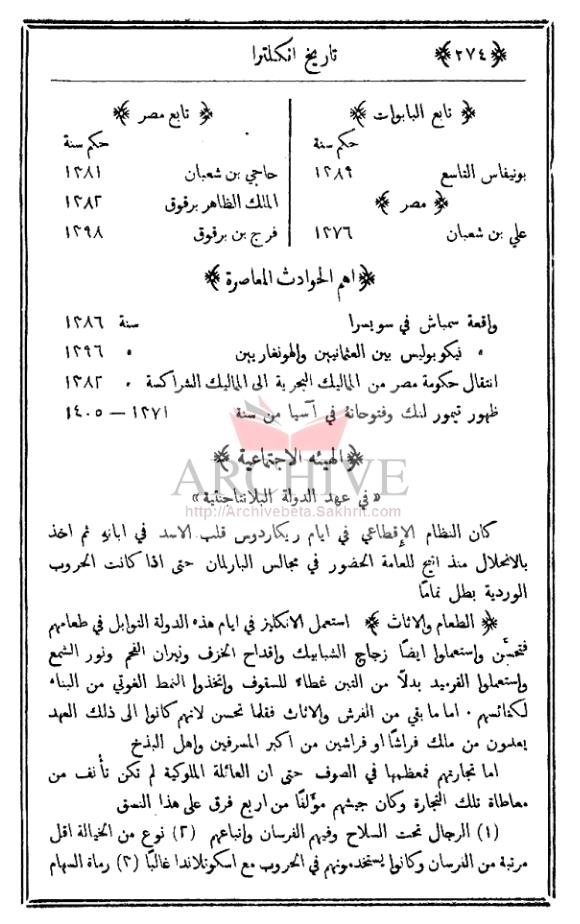 ﴿٢٧٤﴾ تاريخ انكلترا
﴿ تابع البابوات ﴾
حكم سنة
بونيفاس التاسع ١٣٨٩
﴿ مصر ﴾
علي بن شعبان ١٣٧٦
﴿ تابع مصر ﴾
حكم سنة
حاجي بن شعبان ١٣٨١
الملك الظاهر برقوق ١٣٨٢
فرج بن برقوق ١٣٩٨
﴿ اهم الحوادث المعاصرة ﴾
واقعة سمباش في سويسرا سنة ١٣٨٦
" نيكوبوليس بين العثمانيين والهونغاريين " ١٣٩٦
انتقال حكومة مصر من المماليك البحرية الى المماليك الشراكسة " ١٣٨٢
ظهور تيمور لنك وفتوحاتة في آسيا من سنة ١٣٧١ — ١٤٠٥
﴿ الهيئه الاجتماعية ﴾
ARCHIVE
« في عهد الدولة البلانتاجنتية »
http://Archivebeta.Sakhrit.com
كان النظام الإقطاعي في ايام ريكاردوس قلب الاسد في ابانهِ ثم اخذ
بالانحلال منذ اتيح للعامة الحضور في مجالس البارلمان حتى اذا كانت الحروب
الوردية بطل تمامًا
﴿ الطعام والاثاث ﴾ استعمل الانكليز في ايام هذه الدولة التوابل في طعامهم
فتحسَّن واستعملوا ايضًا زجاج الشبابيك واقداح الخزف ونيران الفحم ونور الشمع
واستعملوا القرميد بدلًا من التبن غطاءً للسقوف واتخذوا النمط الغوتي من البناء
لكنائسهم . اما ما بقي من الفرش والاثاث فقلما تحسن لانهم كانوا الى ذلك العهد
يعدون من مالك فراشًا او فراشين من اكبر المسرفين واهل البذخ
اما تجارتهم فمعظمها في الصوف حتى ان العائلة الملوكية لم تكن تأنف من
معاطاة تلك التجارة وكان جيشهم مؤلفًا من اربع فرق على هذا النسق
(١) الرجال تحت السلاح وفيهم الفرسان واتباعهم (٢) نوع من الخيالة اقل
مرتبة من الفرسان وكانوا يستخدمونهم في الحروب مع اسكوتلاندا غالبًا (٣) رماة السهام